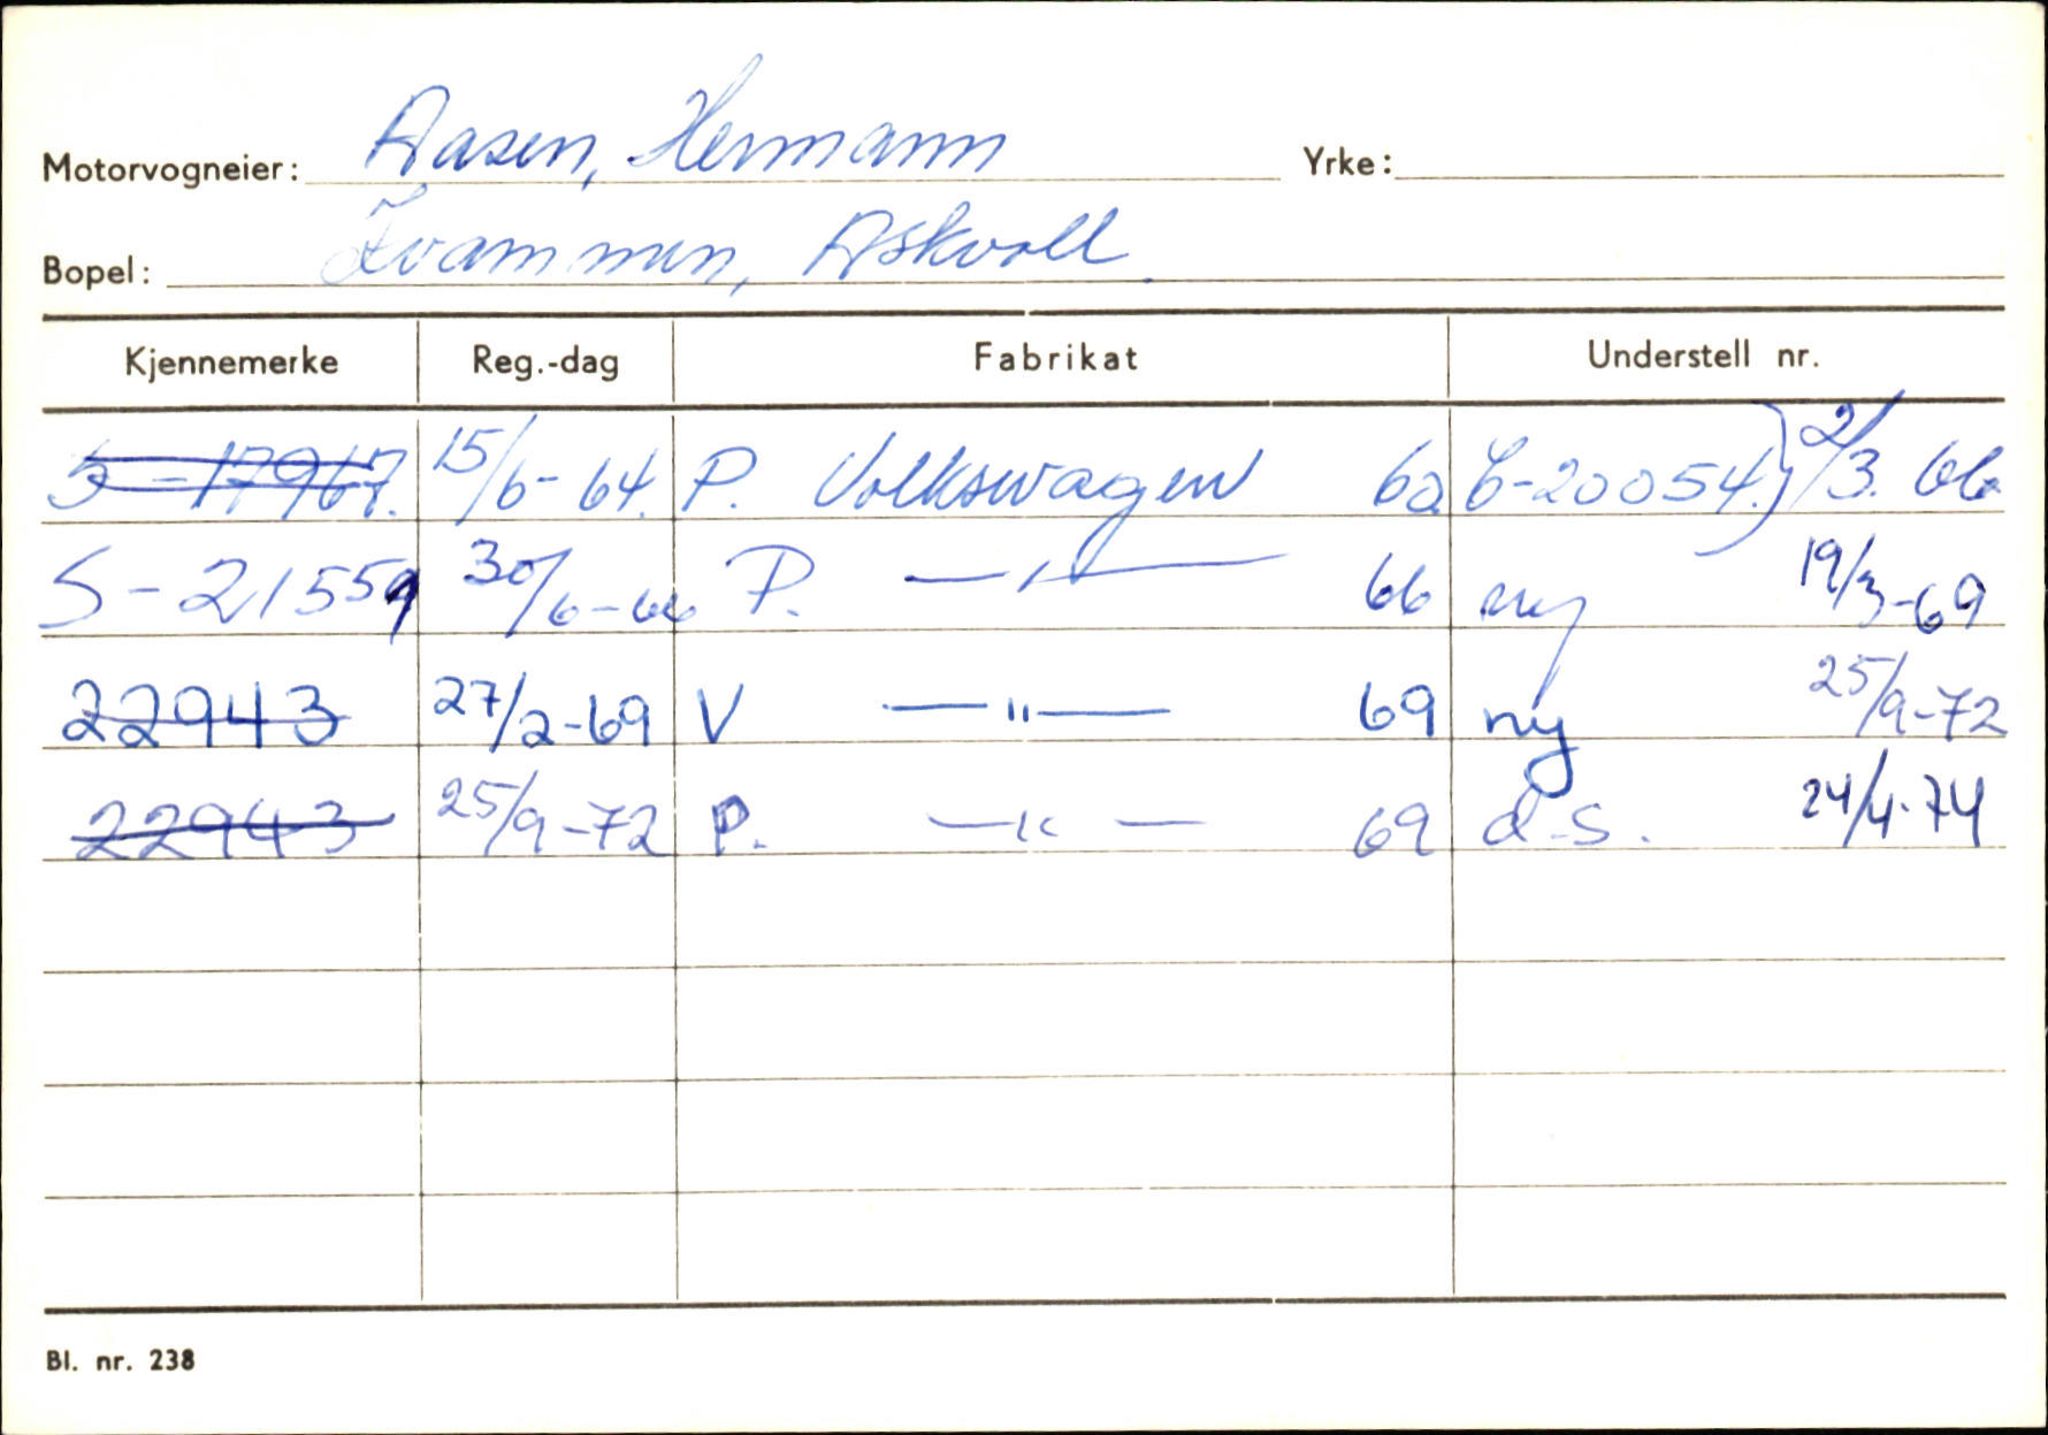 Motorvogneier: Aasen, Hermann Yrke:
Bopel: Kvammen, Askvoll.
Kjennemerke Reg.-dag Fabrikat Understell nr.
S-17967. 15/6-64. P. Volkswagen 60. 6-20054.) 2/3. 66
S-21559 30/6-66 P. —"— 66 ny 19/3-69
22943 27/2-69 V —"— 69 ny 25/9-72
22943 25/9-72 P. —"— 69 d.s. 24/4-74
Bl. nr. 238